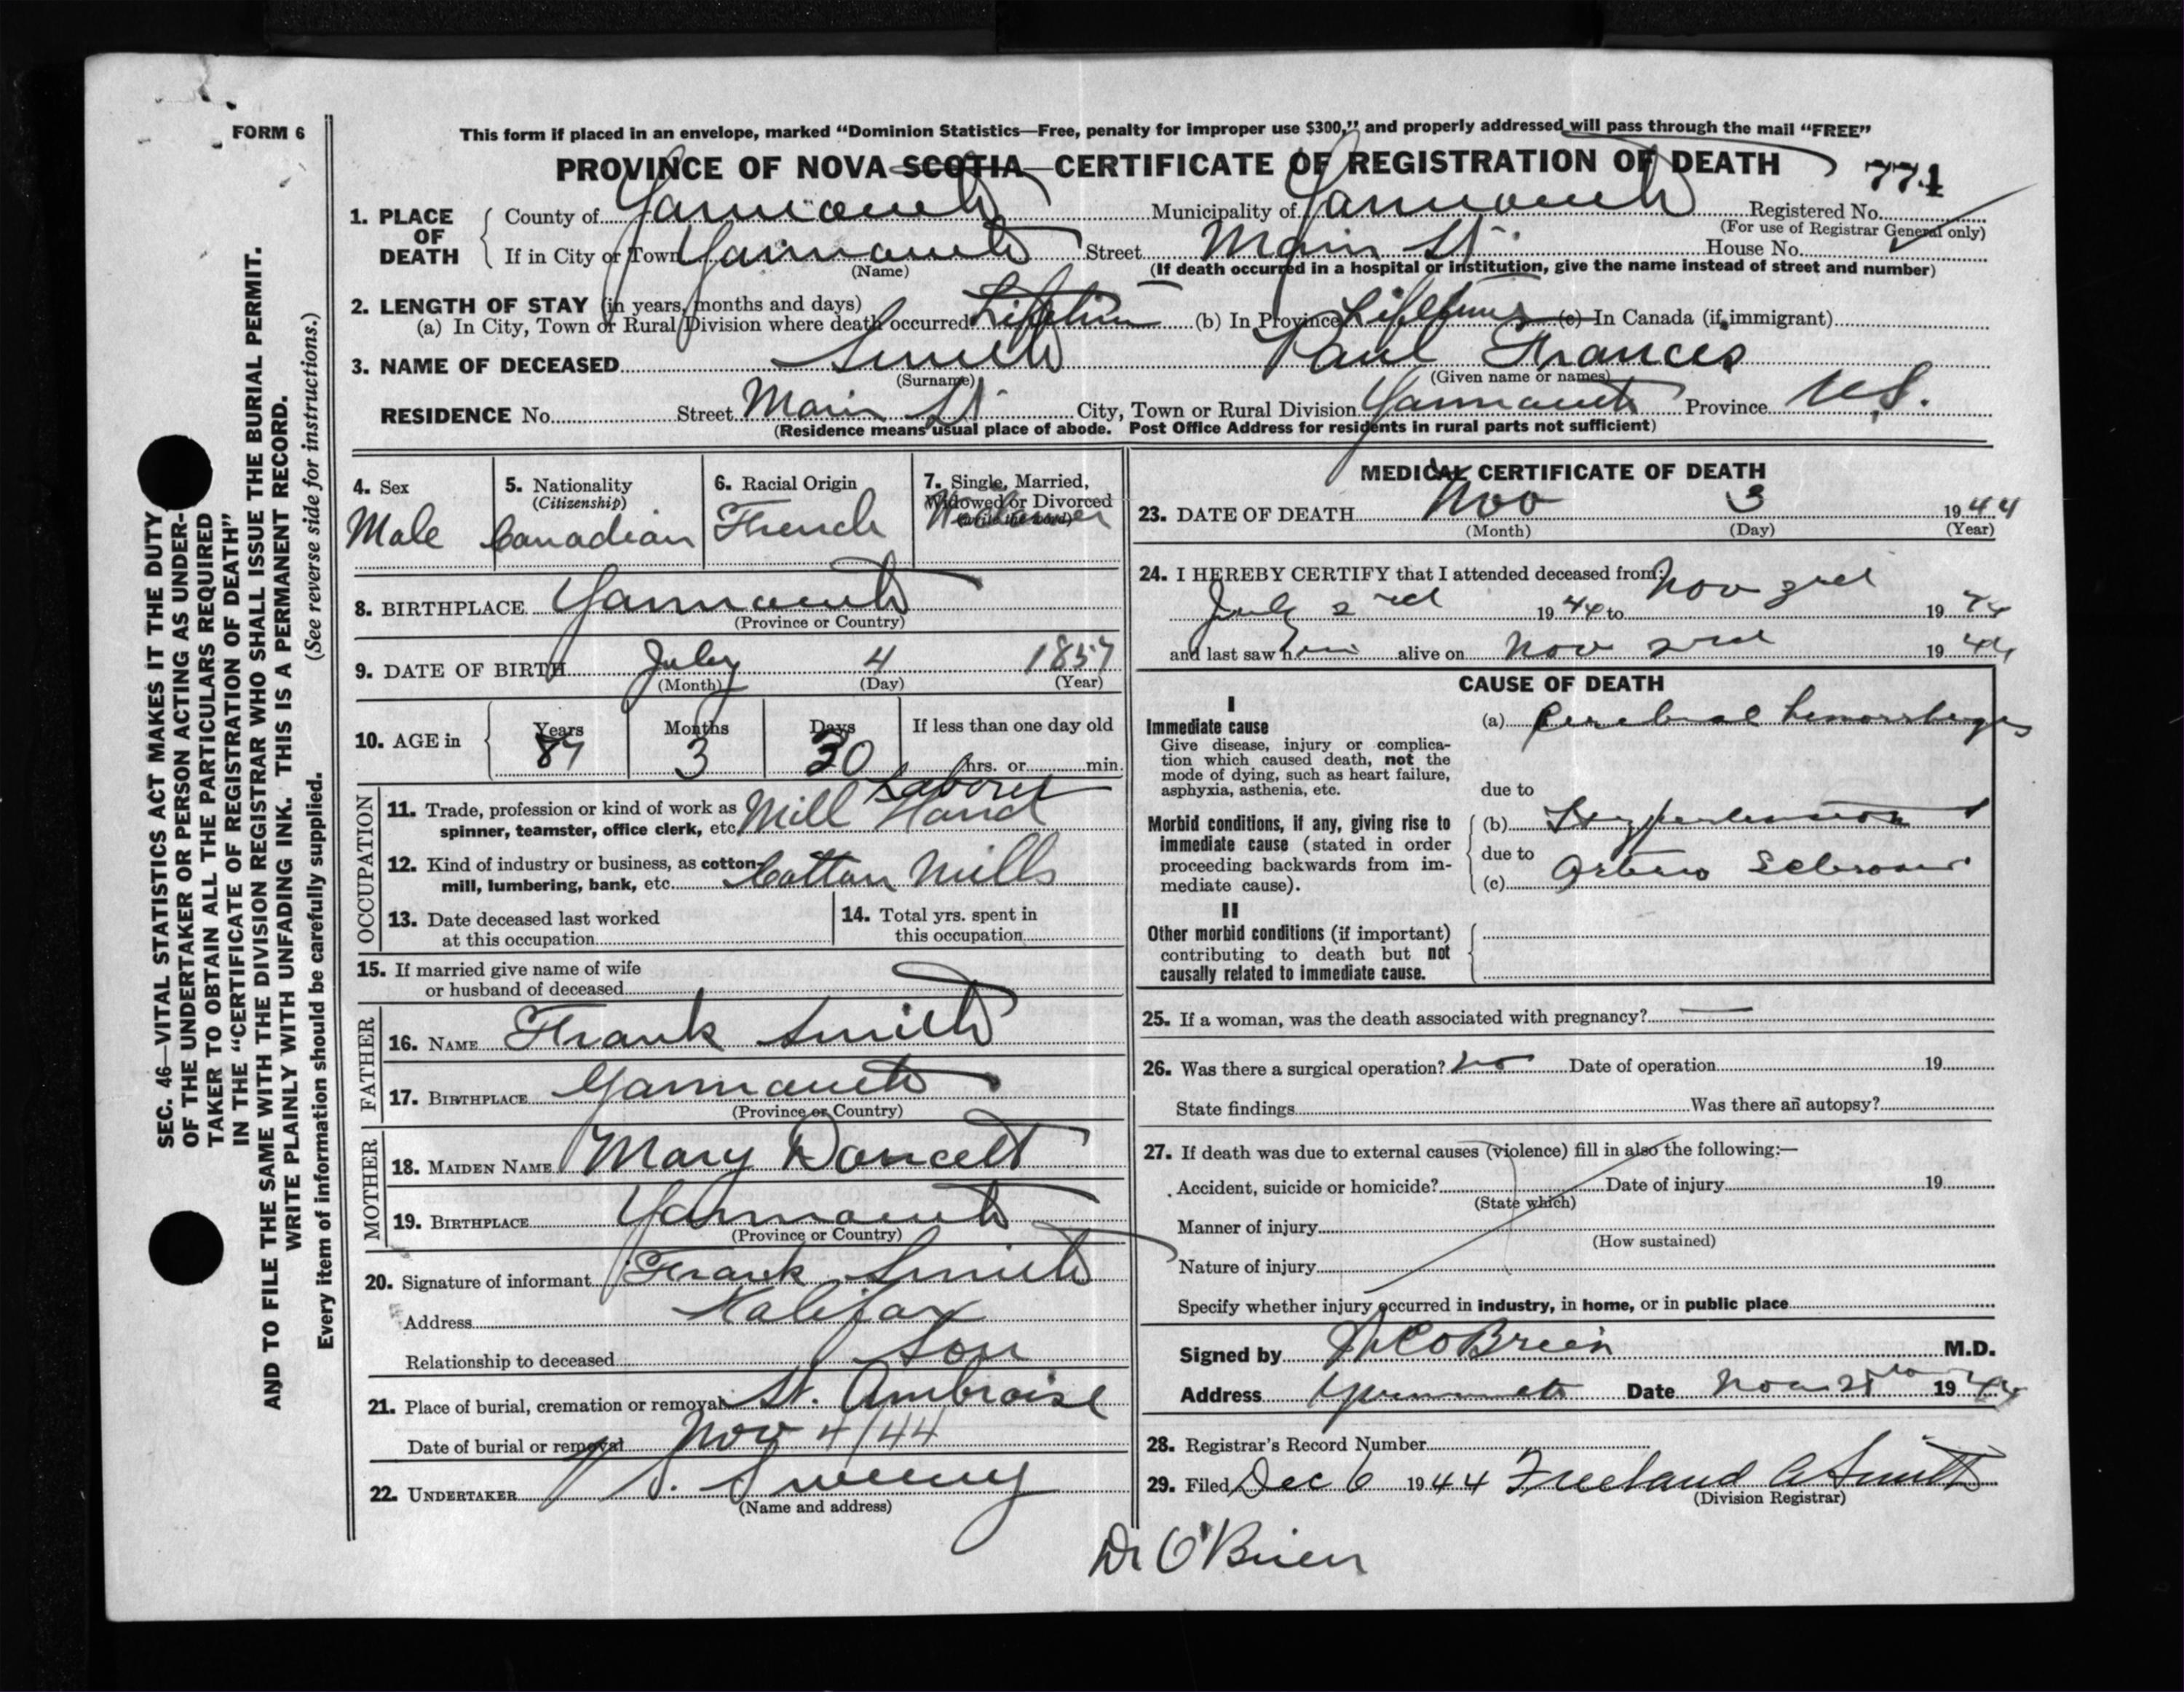 FORM 6
This form if placed in an envelope, marked "Dominion Statistics—Free, penalty for improper use $300," and properly addressed will pass through the mail "FREE"
PROVINCE OF NOVA SCOTIA—CERTIFICATE OF REGISTRATION OF DEATH
771
1. PLACE OF DEATH
County of Yarmouth Municipality of Yarmouth Registered No.
(For use of Registrar General only)
If in City or Town Yarmouth Street Main St. House No.
(Name)
(If death occurred in a hospital or institution, give the name instead of street and number)
2. LENGTH OF STAY (in years, months and days)
(a) In City, Town or Rural Division where death occurred Lifetime (b) In Province Lifetime (c) In Canada (if immigrant)
3. NAME OF DECEASED Smith Paul Frances
(Surname) (Given name or names)
RESIDENCE No. Street Main St City, Town or Rural Division Yarmouth Province N.S.
(Residence means usual place of abode. Post Office Address for residents in rural parts not sufficient)
4. Sex
Male
5. Nationality
(Citizenship)
Canadian
6. Racial Origin
French
7. Single, Married,
Widowed or Divorced
(Write the word)
Widower
8. BIRTHPLACE Yarmouth
(Province or Country)
9. DATE OF BIRTH July 4 1857
(Month) (Day) (Year)
10. AGE in Years Months Days If less than one day old
87 3 30 hrs. or min.
OCCUPATION
Laborer
11. Trade, profession or kind of work as
spinner, teamster, office clerk, etc. Mill Hand
12. Kind of industry or business, as cotton-
mill, lumbering, bank, etc. Cotton Mills
13. Date deceased last worked
at this occupation
14. Total yrs. spent in
this occupation
15. If married give name of wife
or husband of deceased
FATHER
16. NAME Frank Smith
17. BIRTHPLACE Yarmouth
(Province or Country)
MOTHER
18. MAIDEN NAME Mary Doucett
19. BIRTHPLACE Yarmouth
(Province or Country)
20. Signature of informant Frank Smith
Address Halifax
Relationship to deceased Son
21. Place of burial, cremation or removal St. Ambroise
Date of burial or removal Nov 4/44
22. UNDERTAKER V. S. Sweeny
(Name and address)
MEDICAL CERTIFICATE OF DEATH
23. DATE OF DEATH Nov 3 1944
(Month) (Day) (Year)
24. I HEREBY CERTIFY that I attended deceased from:
July 2nd 1944 to Nov 3rd 1944
and last saw him alive on Nov 2nd 1944
CAUSE OF DEATH
I
Immediate cause
Give disease, injury or complica-
tion which caused death, not the
mode of dying, such as heart failure,
asphyxia, asthenia, etc.
(a) Cerebral hemorrhage
due to
Morbid conditions, if any, giving rise to
immediate cause (stated in order
proceeding backwards from im-
mediate cause).
(b) Hypertension
due to
(c) Arterio Sclerosis
II
Other morbid conditions (if important)
contributing to death but not
causally related to immediate cause.
25. If a woman, was the death associated with pregnancy? —
26. Was there a surgical operation? no Date of operation 19
State findings Was there an autopsy?
27. If death was due to external causes (violence) fill in also the following:—
Accident, suicide or homicide? Date of injury 19
(State which)
Manner of injury
(How sustained)
Nature of injury
Specify whether injury occurred in industry, in home, or in public place
Signed by O'Brien M.D.
Address Yarmouth Date Nov 1944
28. Registrar's Record Number
29. Filed Dec 6 1944 Freeland A Smith
(Division Registrar)
Dr O'Brien
SEC. 46—VITAL STATISTICS ACT MAKES IT THE DUTY
OF THE UNDERTAKER OR PERSON ACTING AS UNDER-
TAKER TO OBTAIN ALL THE PARTICULARS REQUIRED
IN THE "CERTIFICATE OF REGISTRATION OF DEATH"
AND TO FILE THE SAME WITH THE DIVISION REGISTRAR WHO SHALL ISSUE THE BURIAL PERMIT.
WRITE PLAINLY WITH UNFADING INK. THIS IS A PERMANENT RECORD.
Every item of information should be carefully supplied. (See reverse side for instructions.)